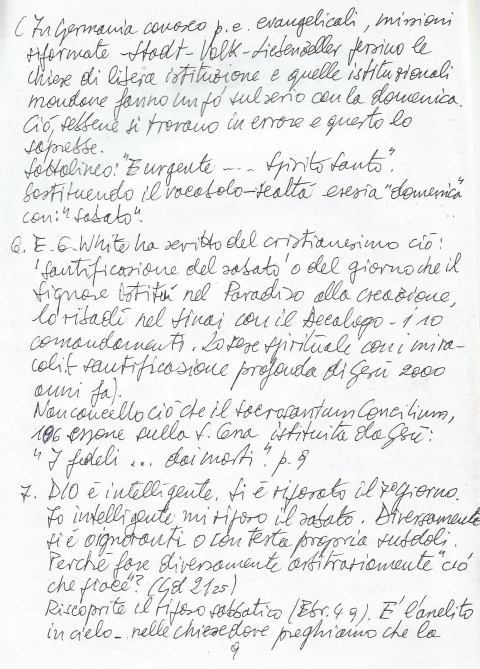 ( In Germania conosco p.e. evangelicali, missioni
riformate - Stadt - Volk - Liebenzeller persino le
chiese di libera istituzione e quelle istituzionali
mondane fanno un pó sul serio con la domenica.
Ció, sebbene si trovano in errore e questo lo
sapresse.
Sottolineo: "E urgente --- Spirito Santo".
Sostituendo il vocabolo-realtà eresia "domenica"
con: "sabato".
6. E. G. White ha scritto del cristianesimo ció:
'santificazione del sabato' o del giorno che il
Signore istituì nel Paradiso alla creazione,
lo ribadì nel Sinai con il Decalogo - i 10
comandamenti. Lo rese spirituale con i mira-
coli (- santificazione profonda di Gesù 2000
anni fa).
Non cancello ció che il Sacrosantum Concilium,
106 espone sulla S. Cena istituita da Gesù:
"I fedeli ... dai morti". p. 9
7. DIO è intelligente. Si è riposato il 7° giorno.
Io intelligente mi riposo il sabato. Diversamente
si è o ignoranti o con testa propria
Perché fare diversamente arbitrariamente "ció
che piace"? (Gd 21 25)
Riscoprite il riposo sabbatico (Ebr. 4 9). E' l'anelito
in cielo - nelle chiese dove preghiamo che la
9